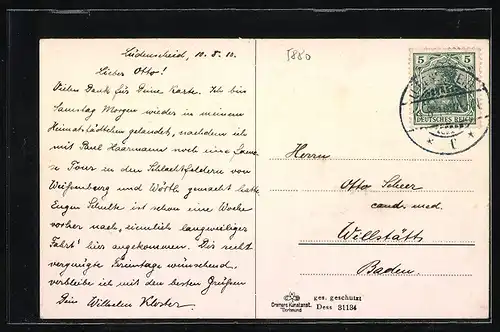 Lüdenscheid, 10.8.10.
Lieber Otto!
Vielen Dank für Deine Karte. Ich bin
Samstag Morgen wieder in meinem
Heimatstädtchen gelandet, nachdem ich
mit Paul Haarmann noch eine
Tour in den Schlachtfeldern von
Weißenburg und Wörth gemacht hatte.
Eugen Schulte ist schon eine Woche
vorher nach „ziemlich langweiliger
Fahrt“ hier angekommen. Dir recht
vergnügte Ferientage wünschend,
verbleibe ich mit den besten Grüßen
Dein Wilhelm Kloster.
5880
5 5
DEUTSCHES REICH
* c *
Herrn
Otto Scheer
cand. med.
Willstätt
Baden.
Cramers Kunstanst.
Dortmund
ges. geschützt
Dess 31134